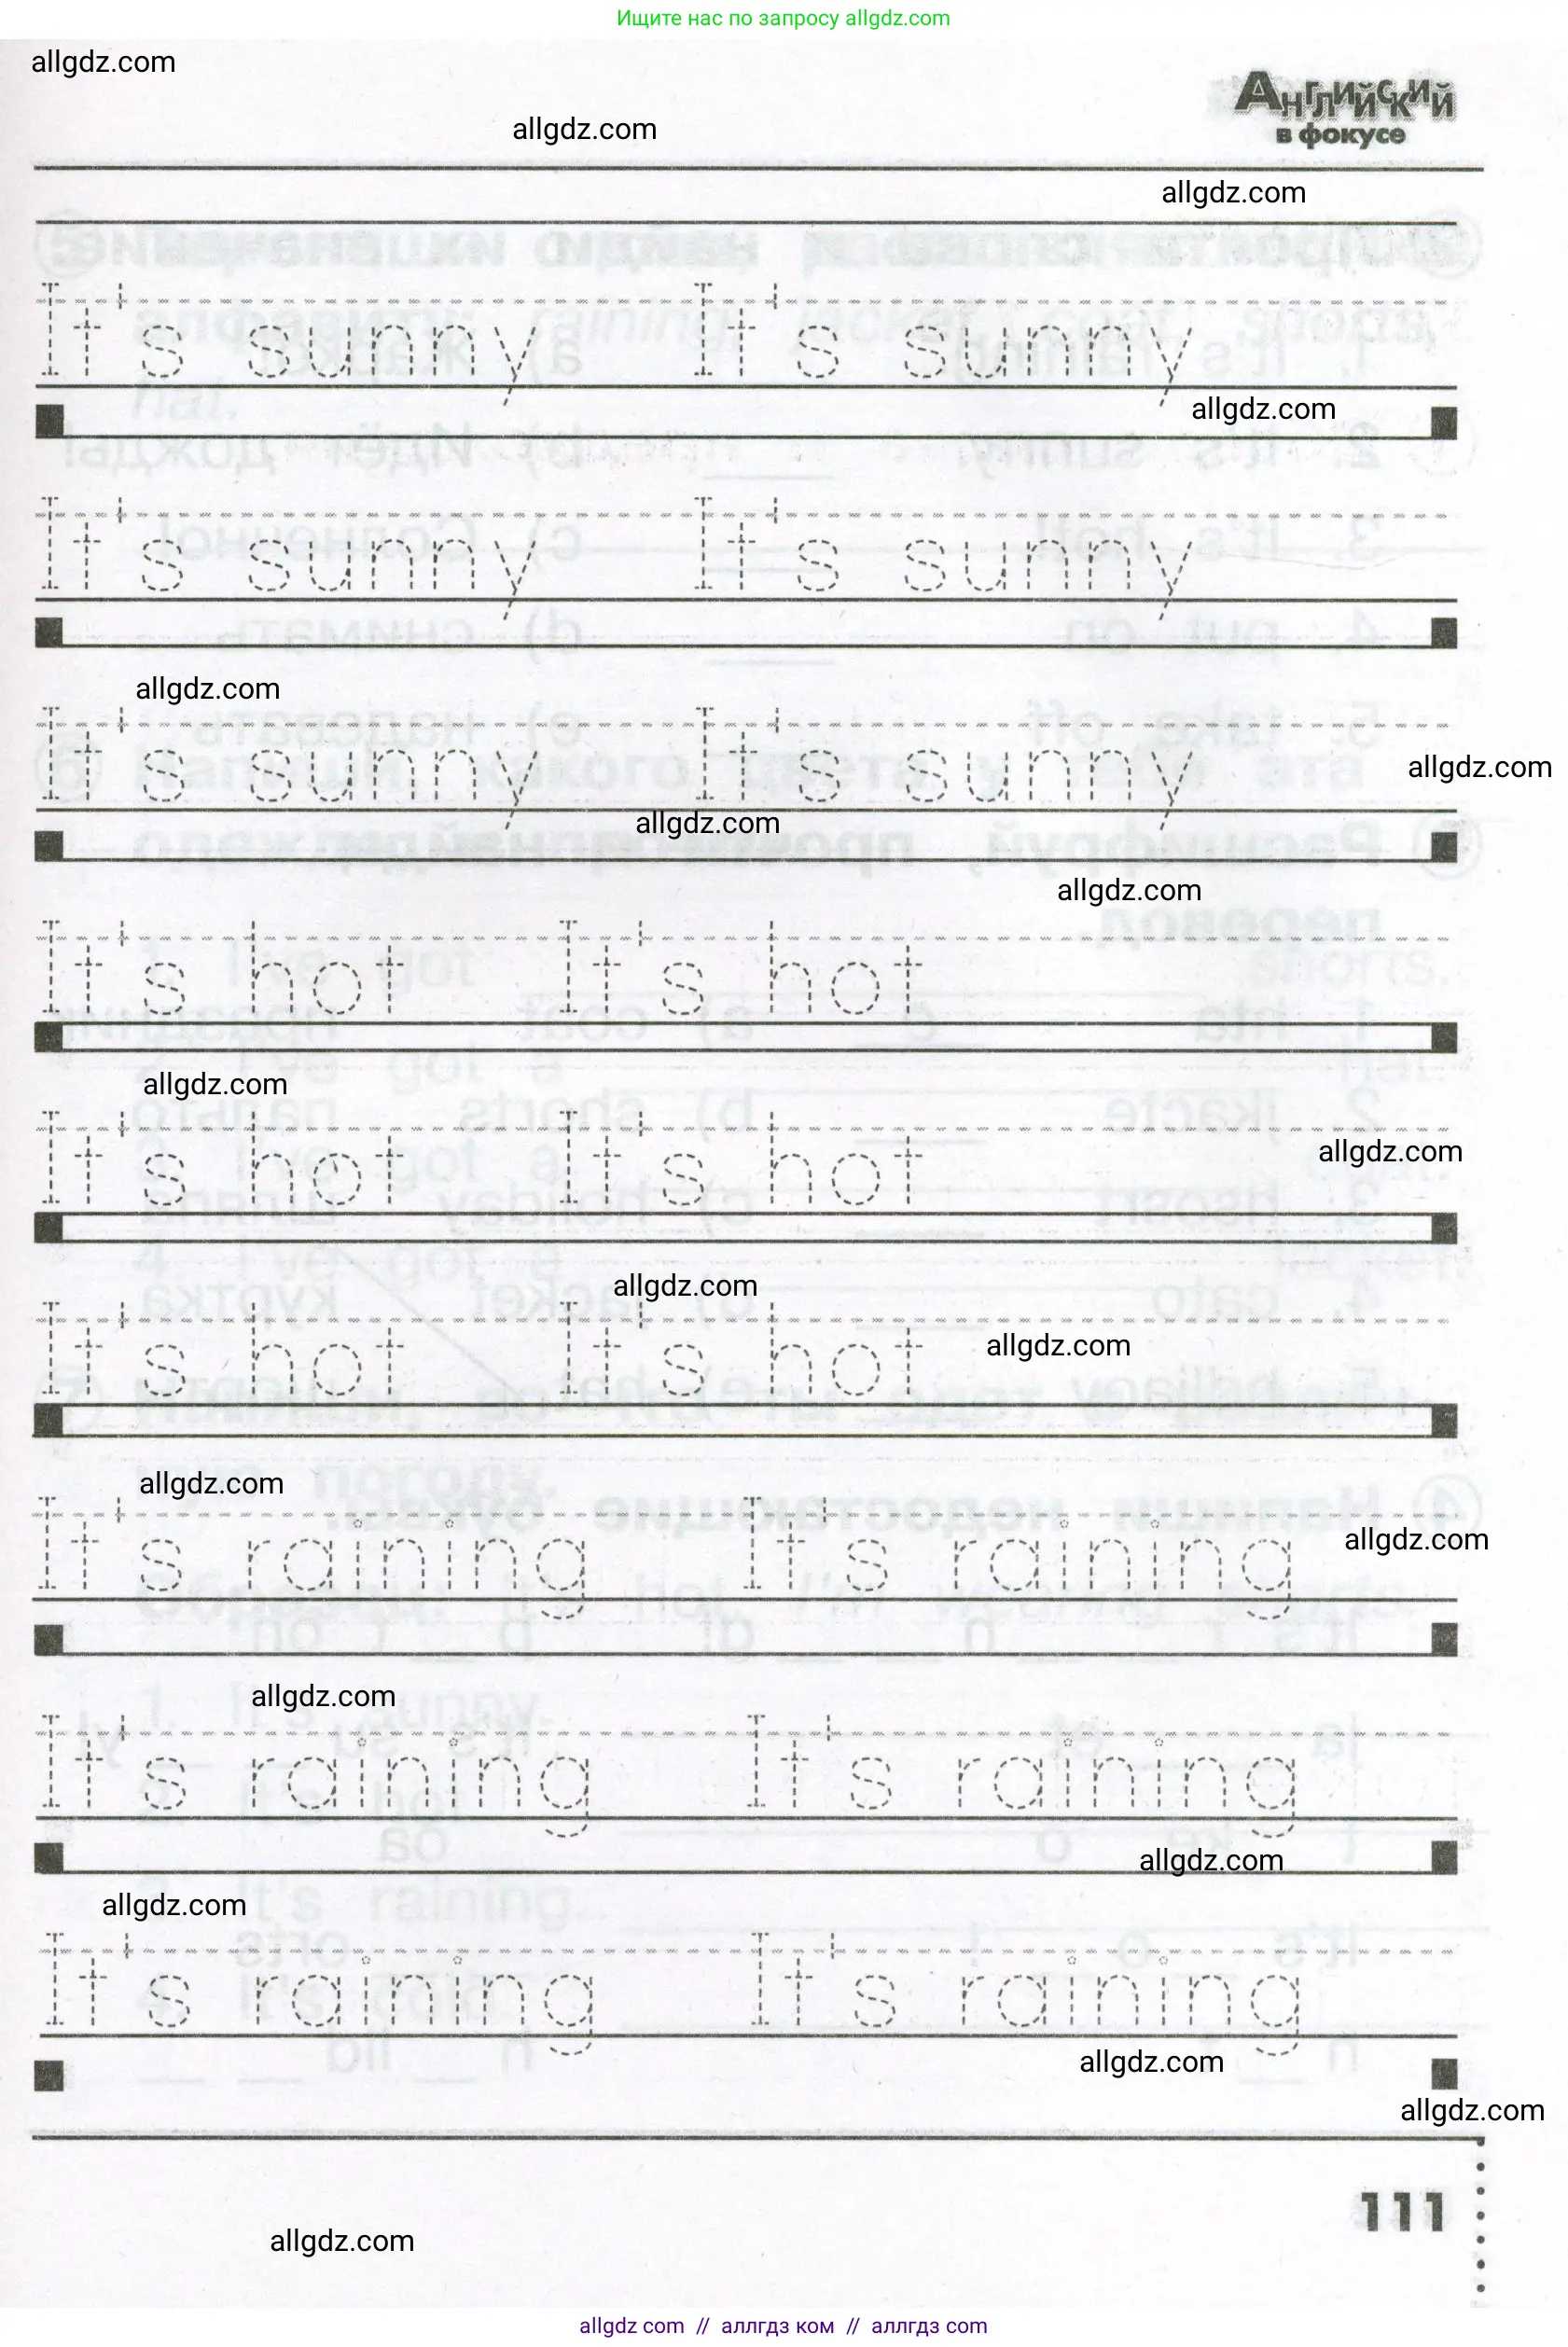 Ищите нас по запросу allgdz.com
allgdz.com
Английский
в фокусе
allgdz.com
allgdz.com
It's sunny It's sunny
allgdz.com
It's sunny It's sunny
allgdz.com
It's sunny It's sunny
allgdz.com
allgdz.com
allgdz.com
It's hot It's hot
allgdz.com
It's hot It's hot
allgdz.com
allgdz.com
It's hot It's hot
allgdz.com
allgdz.com
It's raining It's raining
allgdz.com
allgdz.com
It's raining It's raining
allgdz.com
allgdz.com
It's raining It's raining
allgdz.com
allgdz.com
111
allgdz.com
allgdz com // аллгдз ком // аллгдз com